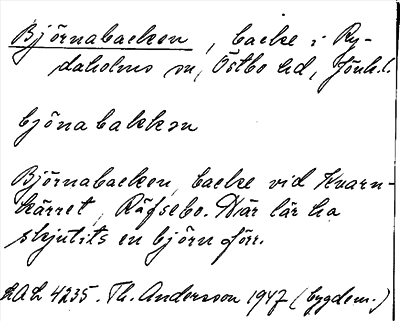 Björnabacken, backe i Ry-
daholms sn, Östbo hd, Jönk.l.
bjönabakkən
Björnabacken, backe vid Kvarn-
kärret, Räfsebo. Där lär ha
skjutits en björn förr.
LAL 4235. Th. Andersson 1947 (bygdem.)